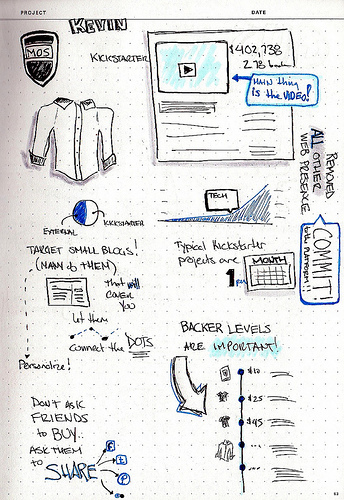 PROJECT
DATE
KEVIN
MOS
KICKSTARTER
$402,738
MAIN thing
is the VIDEO!
REMOVED
ALL OTHER
WEB PRESENCE
COMMIT!
to the PLATFORM!!
TECH
EXTERNAL
KICKSTARTER
TARGET SMALL BLOGS!
(MANY of THEM)
that will
COVER
YOU
let them
connect the DOTS
Personalize!
Typical Kickstarter
projects are
1
MONTH
BACKER LEVELS
ARE IMPORTANT!
$10
$25
$45
...
...
DON'T ASK
FRIENDS
to BUY..
ASK THEM
to SHARE
f
t
P